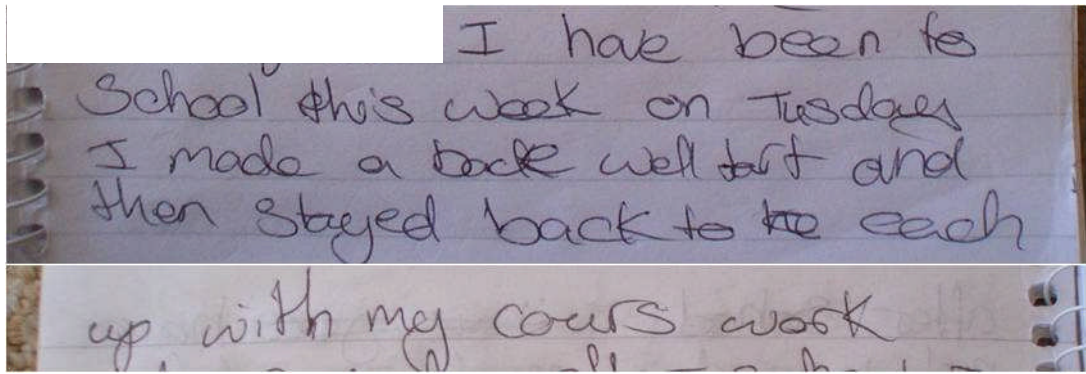 I have been to
School this week on Tusday
I made a backe well tart and
then stayed back to each
up with my cours work